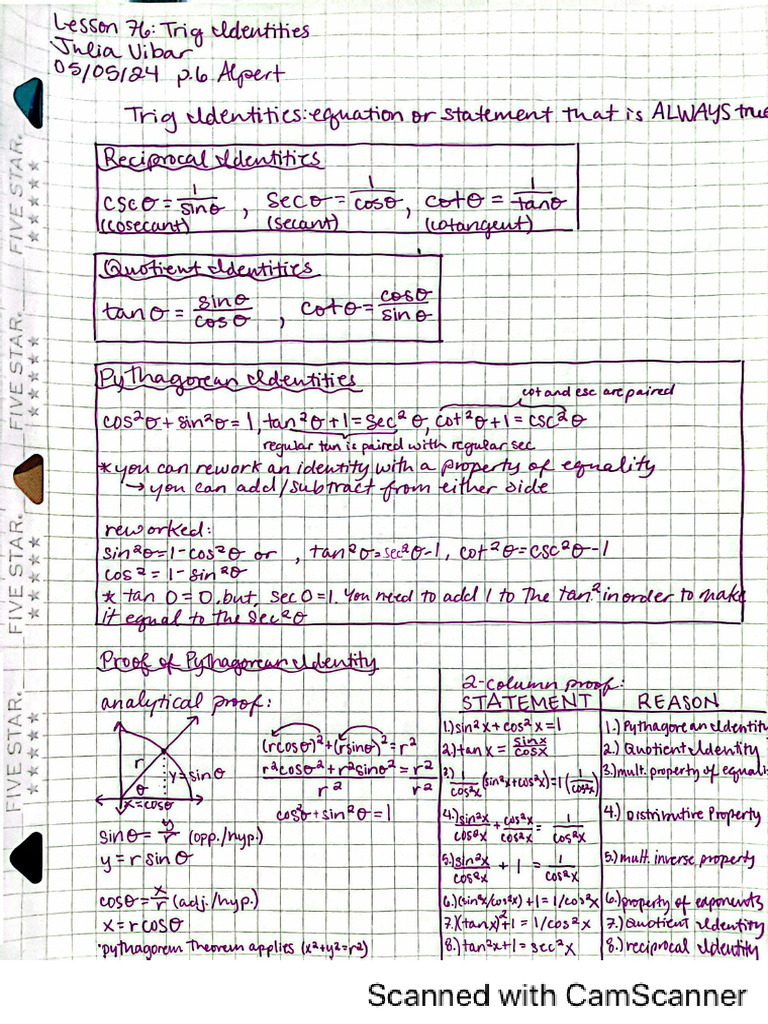 Lesson 76: Trig Identities
Julia Vibar
05/05/24 p.6 Alpert
Trig Identities: equation or statement that is ALWAYS true
Reciprocal Identities
cscθ = 1/sinθ , secθ = 1/cosθ , cotθ = 1/tanθ
(cosecant) (secant) (cotangent)
Quotient Identities
tanθ = sinθ/cosθ , cotθ = cosθ/sinθ
Pythagorean Identities
cot and csc are paired
cos²θ + sin²θ = 1, tan²θ + 1 = sec²θ, cot²θ + 1 = csc²θ
regular tan is paired with regular sec
*you can rework an identity with a property of equality
→ you can add/subtract from either side
reworked:
sin²θ = 1 - cos²θ or , tan²θ = sec²θ - 1, cot²θ = csc²θ - 1
cos² = 1 - sin²θ
* tan 0 = 0, but, sec 0 = 1. You need to add 1 to the tan² in order to make
it equal to the sec²θ
Proof of Pythagorean Identity
analytical proof:
r
θ
y=sinθ
x=cosθ
(rcosθ)²+(rsinθ)²=r²
r²cosθ²+r²sinθ²/r² = r²/r²
cos²θ+sin²θ=1
sinθ = y/r (opp./hyp.)
y = r sinθ
cosθ = x/r (adj./hyp.)
x = r cosθ
*pythagorem Theorem applies (x²+y²=r²)
2-column proof:
STATEMENT REASON
1.) sin²x + cos²x = 1 1.) Pythagorean Identity
2.) tan x = sinx/cosx 2.) Quotient Identity
3.) 1/cos²x (sin²x+cos²x)=1(1/cos²x) 3.) mult. property of equali
4.) sin²x/cos²x + cos²x/cos²x = 1/cos²x 4.) Distributive Property
5.) sin²x/cos²x + 1 = 1/cos²x 5.) mult. inverse property
6.) (sin²x/cos²x) + 1 = 1/cos²x 6.) property of exponents
7.) (tanx)²+1 = 1/cos²x 7.) Quotient Identity
8.) tan²x+1 = sec²x 8.) reciprocal Identity
FIVE STAR.
FIVE STAR.
FIVE STAR.
FIVE STAR.
Scanned with CamScanner